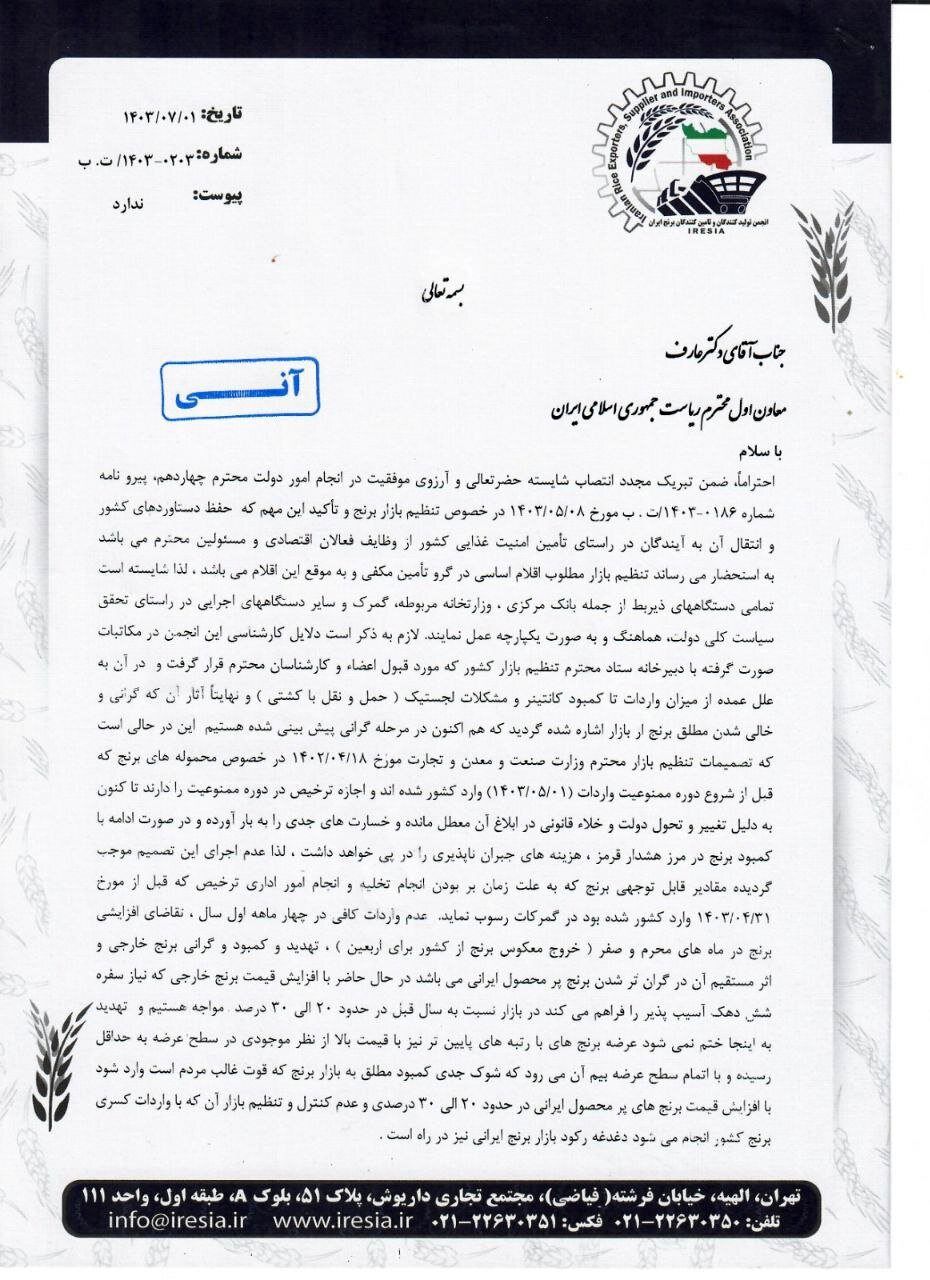 تاریخ: ۱۴۰۳/۰۷/۰۱
شماره: ۱۴۰۳-۰۲۰۳/ ت. ب
پیوست: ندارد
Iranian Rice Exporters, Supplier and Importers Association
انجمن تولید کنندگان و تامین کنندگان برنج ایران
IRESIA
بسمه تعالی
جناب آقای دکتر عارف
آنــی
معاون اول محترم ریاست جمهوری اسلامی ایران
با سلام
احتراماً، ضمن تبریک مجدد انتصاب شایسته حضرتعالی و آرزوی موفقیت در انجام امور دولت محترم چهاردهم، پیرو نامه
شماره ۰۱۸۶-۱۴۰۳/ت . ب مورخ ۱۴۰۳/۰۵/۰۸ در خصوص تنظیم بازار برنج و تأکید این مهم که حفظ دستاوردهای کشور
و انتقال آن به آیندگان در راستای تأمین امنیت غذایی کشور از وظایف فعالان اقتصادی و مسئولین محترم می باشد
به استحضار می رساند تنظیم بازار مطلوب اقلام اساسی در گرو تأمین مکفی و به موقع این اقلام می باشد ، لذا شایسته است
تمامی دستگاههای ذیربط از جمله بانک مرکزی ، وزارتخانه مربوطه، گمرک و سایر دستگاههای اجرایی در راستای تحقق
سیاست کلی دولت، هماهنگ و به صورت یکپارچه عمل نمایند. لازم به ذکر است دلایل کارشناسی این انجمن در مکاتبات
صورت گرفته با دبیرخانه ستاد محترم تنظیم بازار کشور که مورد قبول اعضاء و کارشناسان محترم قرار گرفت و در آن به
علل عمده از میزان واردات تا کمبود کانتینر و مشکلات لجستیک ( حمل و نقل با کشتی ) و نهایتاً آثار آن که گرانی و
خالی شدن مطلق برنج از بازار اشاره شده گردید که هم اکنون در مرحله گرانی پیش بینی شده هستیم این در حالی است
که تصمیمات تنظیم بازار محترم وزارت صنعت و معدن و تجارت مورخ ۱۴۰۲/۰۴/۱۸ در خصوص محموله های برنج که
قبل از شروع دوره ممنوعیت واردات (۱۴۰۳/۰۵/۰۱) وارد کشور شده اند و اجازه ترخیص در دوره ممنوعیت را دارند تا کنون
به دلیل تغییر و تحول دولت و خلاء قانونی در ابلاغ آن معطل مانده و خسارت های جدی را به بار آورده و در صورت ادامه با
کمبود برنج در مرز هشدار قرمز ، هزینه های جبران ناپذیری را در پی خواهد داشت ، لذا عدم اجرای این تصمیم موجب
گردیده مقادیر قابل توجهی برنج که به علت زمان بر بودن انجام تخلیه و انجام امور اداری ترخیص که قبل از مورخ
۱۴۰۳/۰۴/۳۱ وارد کشور شده بود در گمرکات رسوب نماید. عدم واردات کافی در چهار ماهه اول سال ، تقاضای افزایشی
برنج در ماه های محرم و صفر ( خروج معکوس برنج از کشور برای اربعین ) ، تهدید و کمبود و گرانی برنج خارجی و
اثر مستقیم آن در گران تر شدن برنج پر محصول ایرانی می باشد در حال حاضر با افزایش قیمت برنج خارجی که نیاز سفره
شش دهک آسیب پذیر را فراهم می کند در بازار نسبت به سال قبل در حدود ۲۰ الی ۳۰ درصد مواجه هستیم و تهدید
به اینجا ختم نمی شود عرضه برنج های با رتبه های پایین تر نیز با قیمت بالا از نظر موجودی در سطح عرضه به حداقل
رسیده و با اتمام سطح عرضه بیم آن می رود که شوک جدی کمبود مطلق به بازار برنج که قوت غالب مردم است وارد شود
با افزایش قیمت برنج های پر محصول ایرانی در حدود ۲۰ الی ۳۰ درصدی و عدم کنترل و تنظیم بازار آن که با واردات کسری
برنج کشور انجام می شود دغدغه رکود بازار برنج ایرانی نیز در راه است .
تهران، الهیه، خیابان فرشته( فیاضی)، مجتمع تجاری داریوش، پلاک ۵۱، بلوک A، طبقه اول، واحد ۱۱۱
تلفن: ۲۲۶۳۰۳۵۰-۰۲۱ فکس: ۲۲۶۳۰۳۵۱-۰۲۱ www.iresia.ir info@iresia.ir